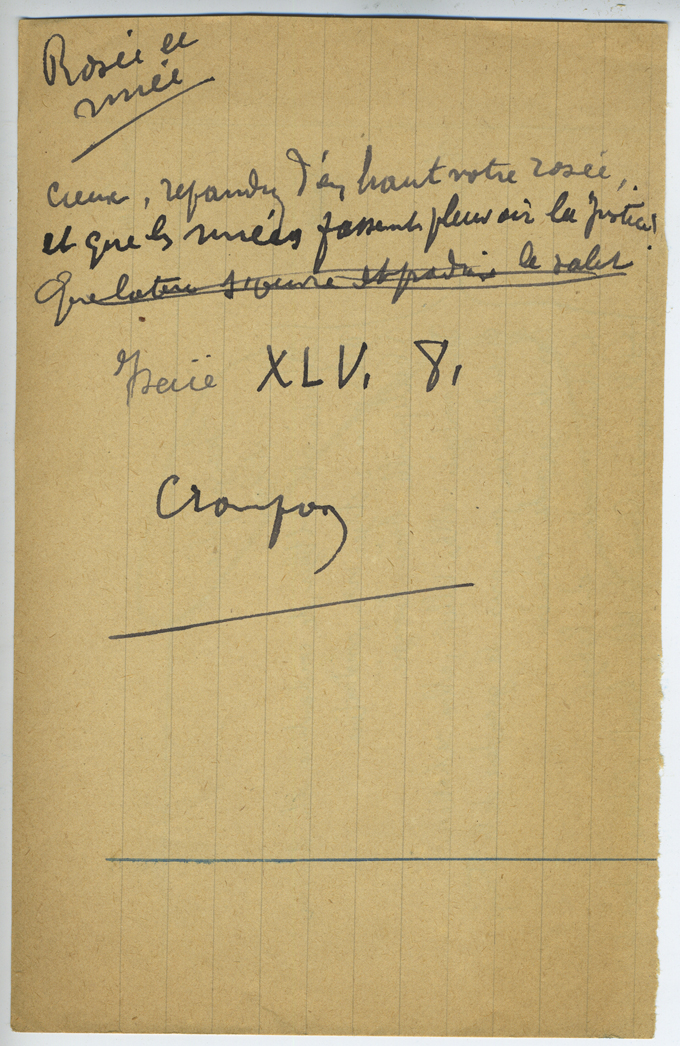 Rosée et
nuée
Cieux, repandez d'en haut votre rosée,
et que les nuées fassent pleuvoir la Justice!
Que la terre s'ouvre et produise le salut
Isaïe XLV, 8,
Crampon